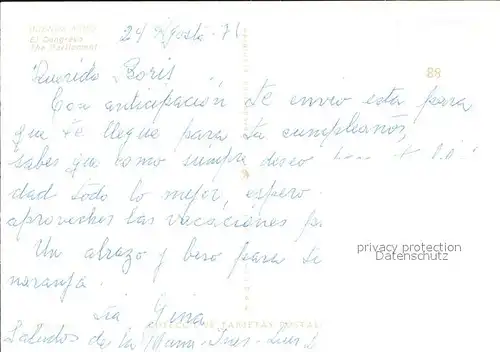 Buenos Aires
El Congreso
The Parliament
24 Agosto - 71
88
Querido Boris
Con anticipación te envio esta para
que te llegue para tu cumpleaños,
sabes que como siempre deseo
dad todo lo mejor, espero
aproveches las vacaciones
Un abrazo y beso para
naranja.
privacy protection
Datenschutz
tia Gina
COLECCION TARJETAS POSTAL
Saludos de la Mama - Ines - Luis